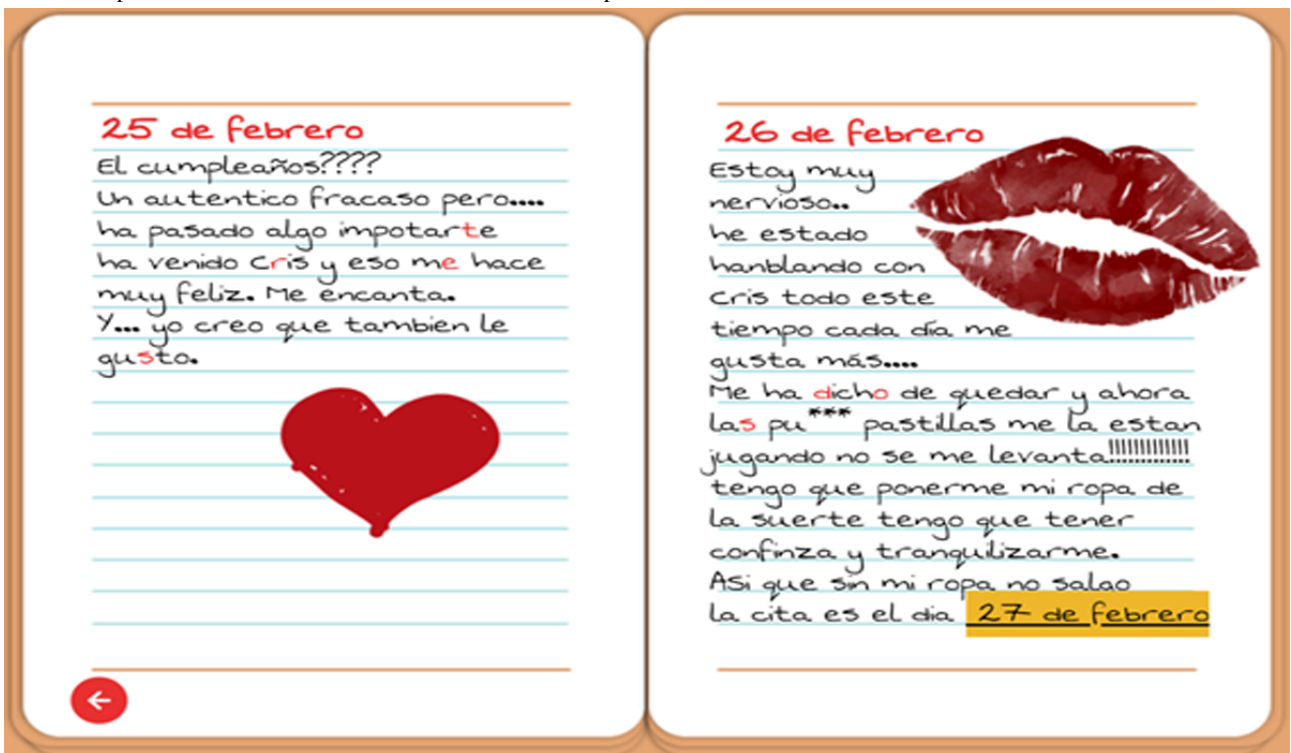 25 de febrero
El cumpleaños????
Un autentico fracaso pero....
ha pasado algo impotarte
ha venido Cris y eso me hace
muy feliz. Me encanta.
Y... yo creo que tambien le
gusto.
26 de febrero
Estoy muy
nervioso..
he estado
hanblando con
Cris todo este
tiempo cada día me
gusta más....
Me ha dicho de quedar y ahora
las pu*** pastillas me la estan
jugando no se me levanta!!!!!!!!!!!!!
tengo que ponerme mi ropa de
la suerte tengo que tener
confinza y tranquilizarme.
ASi que sin mi ropa no salgo
la cita es el dia 27 de febrero